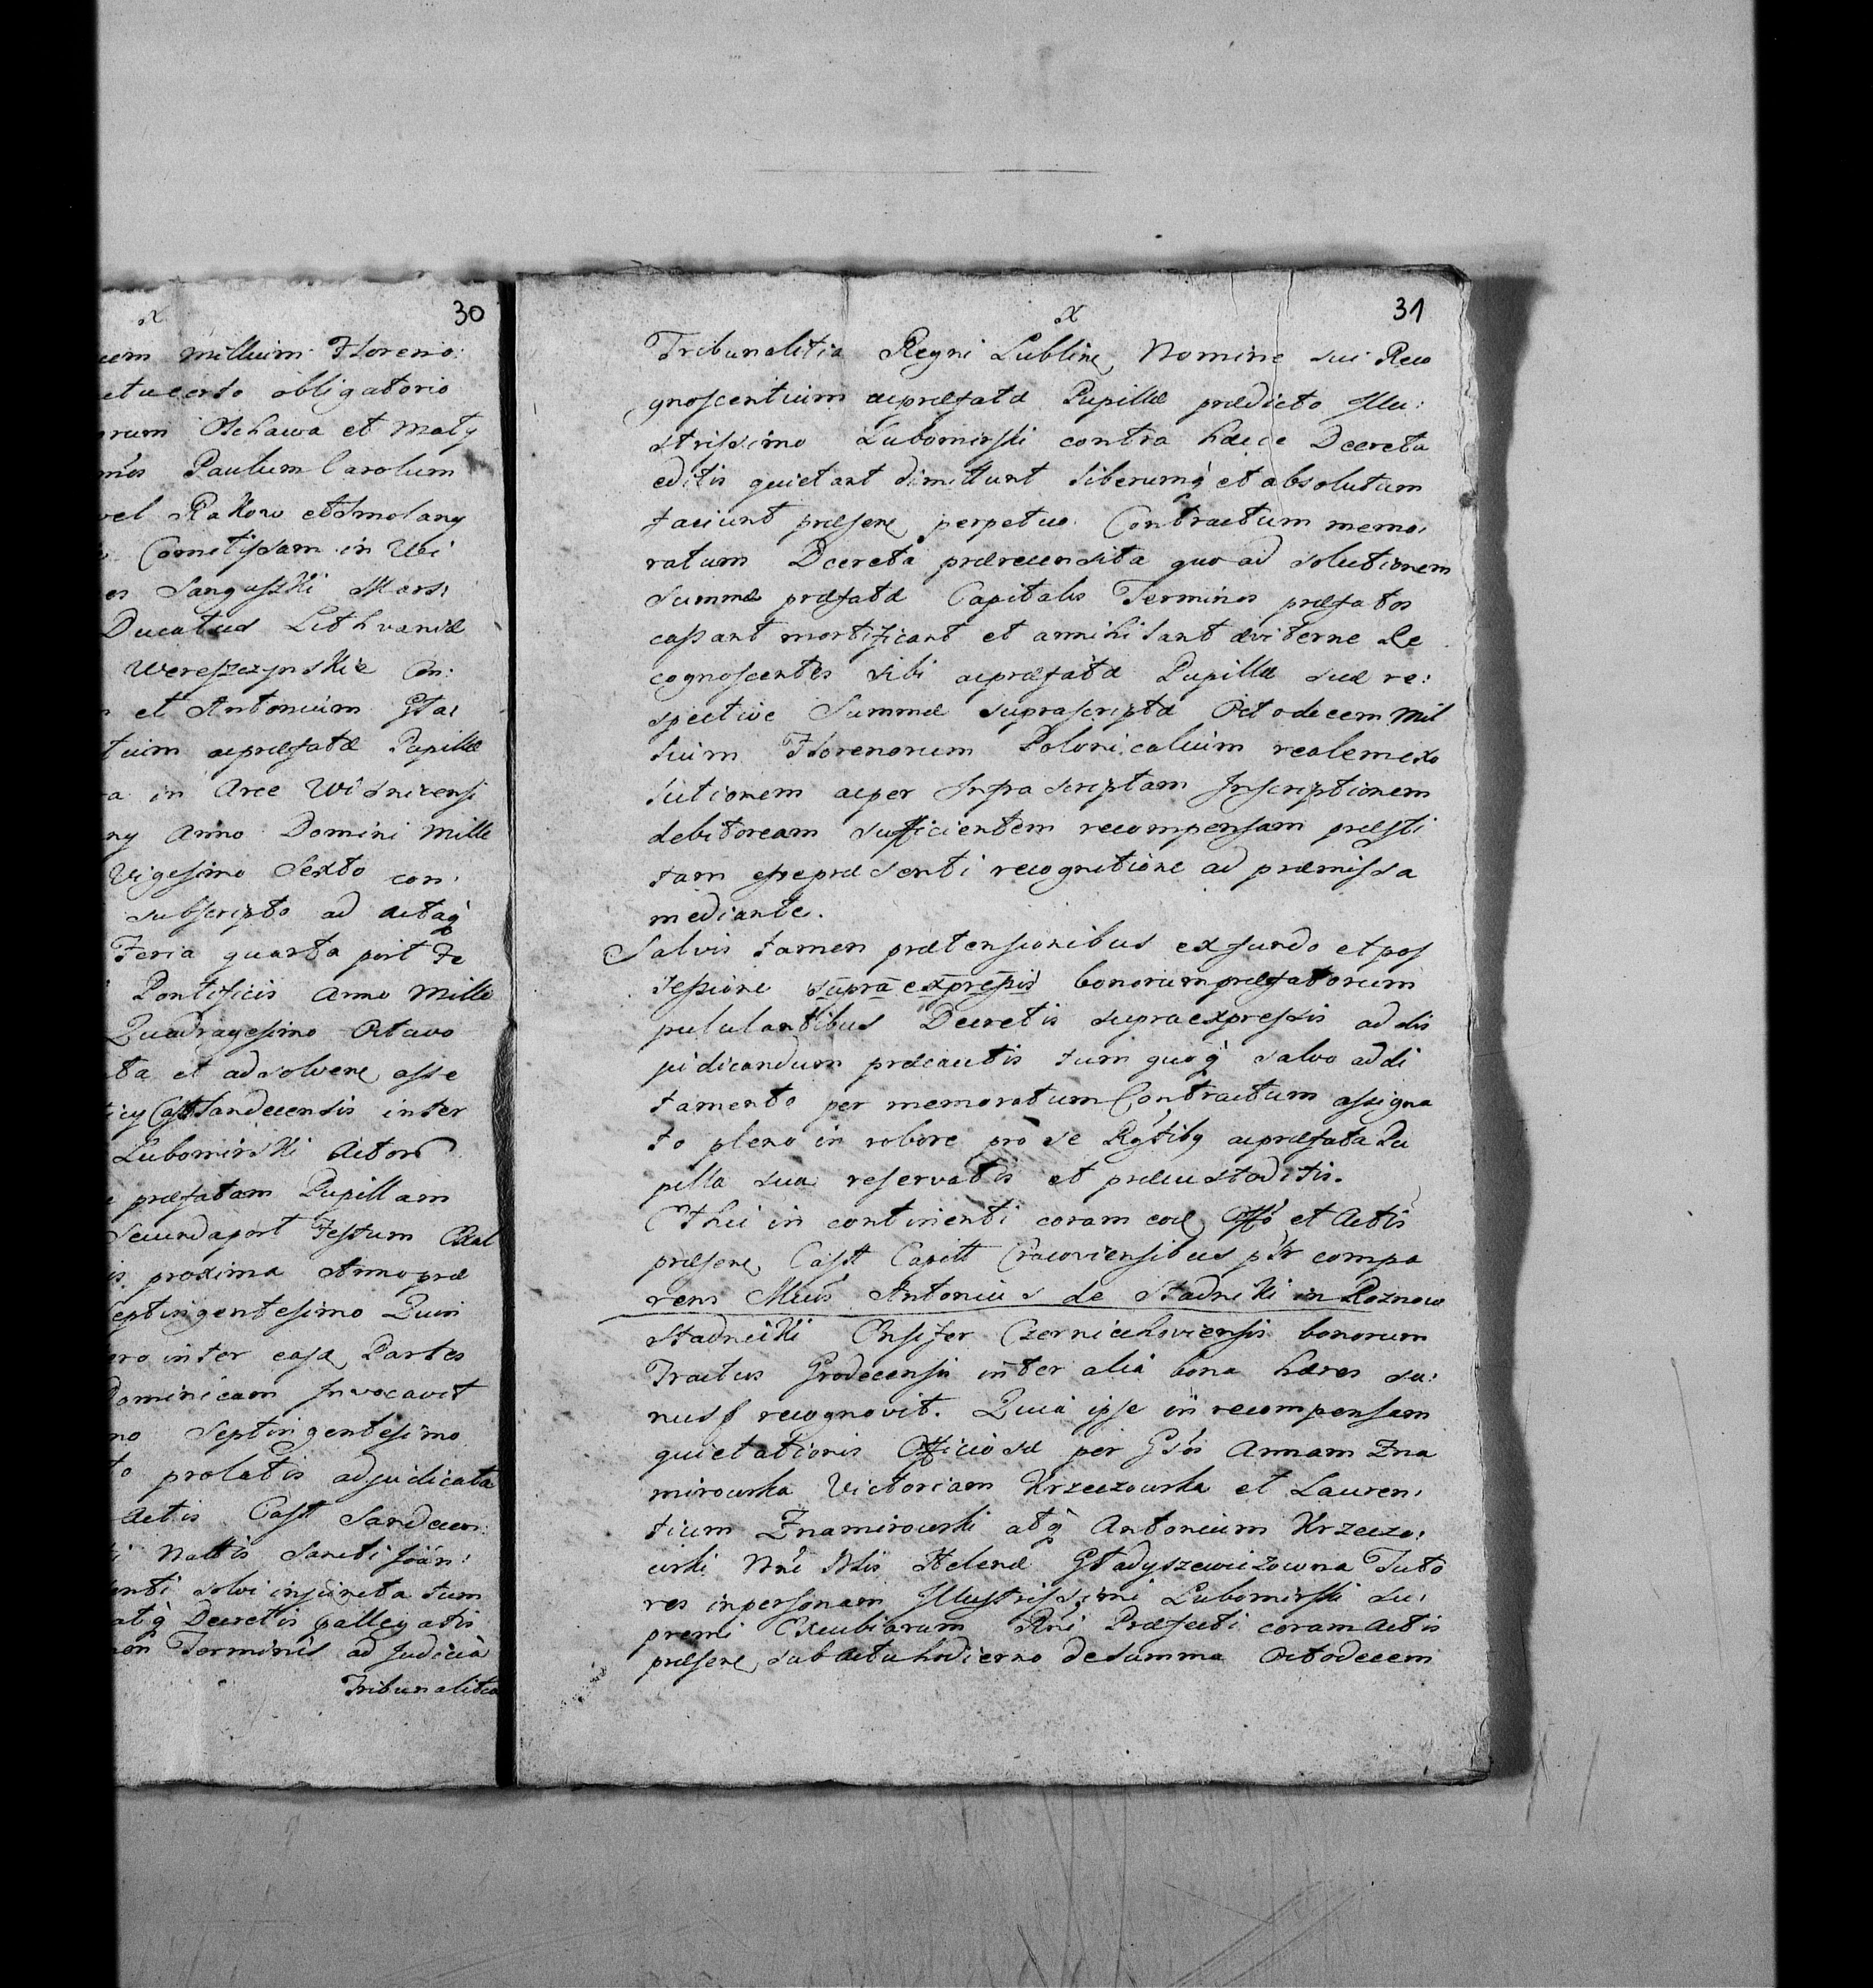 30
x
uem millium Floreno:
etuerso obligatorio
orum Olchawa et Maty
Paulum Carolum
vel Rakow et Smolany
Comitissam in Wi
os Sanguszki Mars:
Ducatus Lithvaniæ
Wereszczynskie
et Antonium
tium acpræfatæ Pupillæ
a in Arce Wisnicensi
ny Anno Domini Mille
Vigesimo Sexto con:
subscripto ad actaq̀
Feria quarta post Fe
Pontificis Anno Mille
Quadragesimo Octavo
ta et adsolvene asse
Sandecensis inter
Lubomirski Actore
præfatam Pupillam
Secundapost Festum
is proxima Annopræ
eptingentesimo Quin
ro inter easd Partes
Dominicam Invocavit
no Septingentesimo
to prolatis adjudicata
Actis Castt Sandecen:
Nattis Sancti Joãn:
enti solvi injuncta tum
atq̀ Decretis
Terminis ad Judicia
Tribunalitia
31
x
Tribunalitia Regni Lublinẽ Nomine sui Reco
gnoscentium acpræfatæ Pupillæ prædicto Illu:
strissimo Lubomirski contra hæcce Decreta
editis quietant dimittunt liberumq̀ et absolutum
faciunt præsenẽ perpetuo. Contractum memo:
ratum Decreta prærecensita quo ad solutionem
Summæ præfatæ Capitalis Terminos præfatos
cassant mortificant et annihilant æviterne Re
cognoscentes sibi acpræfatæ Pupillæ suæ re:
spective Summæ suprascriptæ Octodecem Mil
lium Florenorum Polonicalium realem exo
lutionem acper Infra scriptam Inscriptionem
debitoream sufficientem recompensam præsti
tam essepræsenti recognitione ad præmissa
mediante.
Salvis tamen prætensionibus exfundo et pos
sessione supra expressis bonorumpræfatorum
pululantibus Decretis supraexpressis addis
judicandum præcautis tum quoq̀ salvo addi
tamento per memoratum Contractum assigna
to pleno in robore pro se Rgñtibq acpræfata Pu
pilla sua reservatis et præcustoditis.
Et hic in continenti coram eod Offo et Actis
præsenẽ Castt Capitt Cracoviensibus psr compa
rens Mcus Antonius de Stadniki in Roznow
Stadnicki Ensifer Czerniechoviensis bonorum
Tractus Grodecensis inter alia bona hæres sa:
nusq recognovit. Quia ipse in recompensam
quietationis Officiosæ per Gsos Annam Zna
mirowska Victoriam Krzeczowska et Lauren:
tium Znamirowski atq̀ Antonium Krzeczo:
wski Helenæ Gładyszewiczowna Tuto
res inpersonam Illustrissimi Lubomirski Su:
premi Excubiarum Rni Præfecti coram Actis
præsenẽ sub Actu hodierno desumma Octodecem